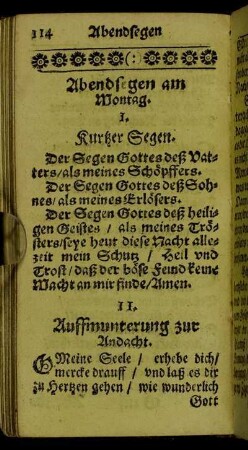 114 Abendsegen
Abendsegen am
Montag.
I.
Kurtzer Segen.
Der Segen Gottes deß Vat-
ters/als meines Schöpffers.
Der Segen Gottes deß Soh-
nes/als meines Erlösers.
Der Segen Gottes deß heili-
gen Geistes / als meines Trö-
sters/seye heut diese Nacht alle-
zeit mein Schutz / Heil vnd
Trost/daß der böse Feind keine
Macht an mir finde/Amen.
II.
Auffmunterung zur
Andacht.
O Meine Seele / erhebe dich/
mercke drauff / vnd laß es dir
zu Hertzen gehen / wie wunderlich
Gott